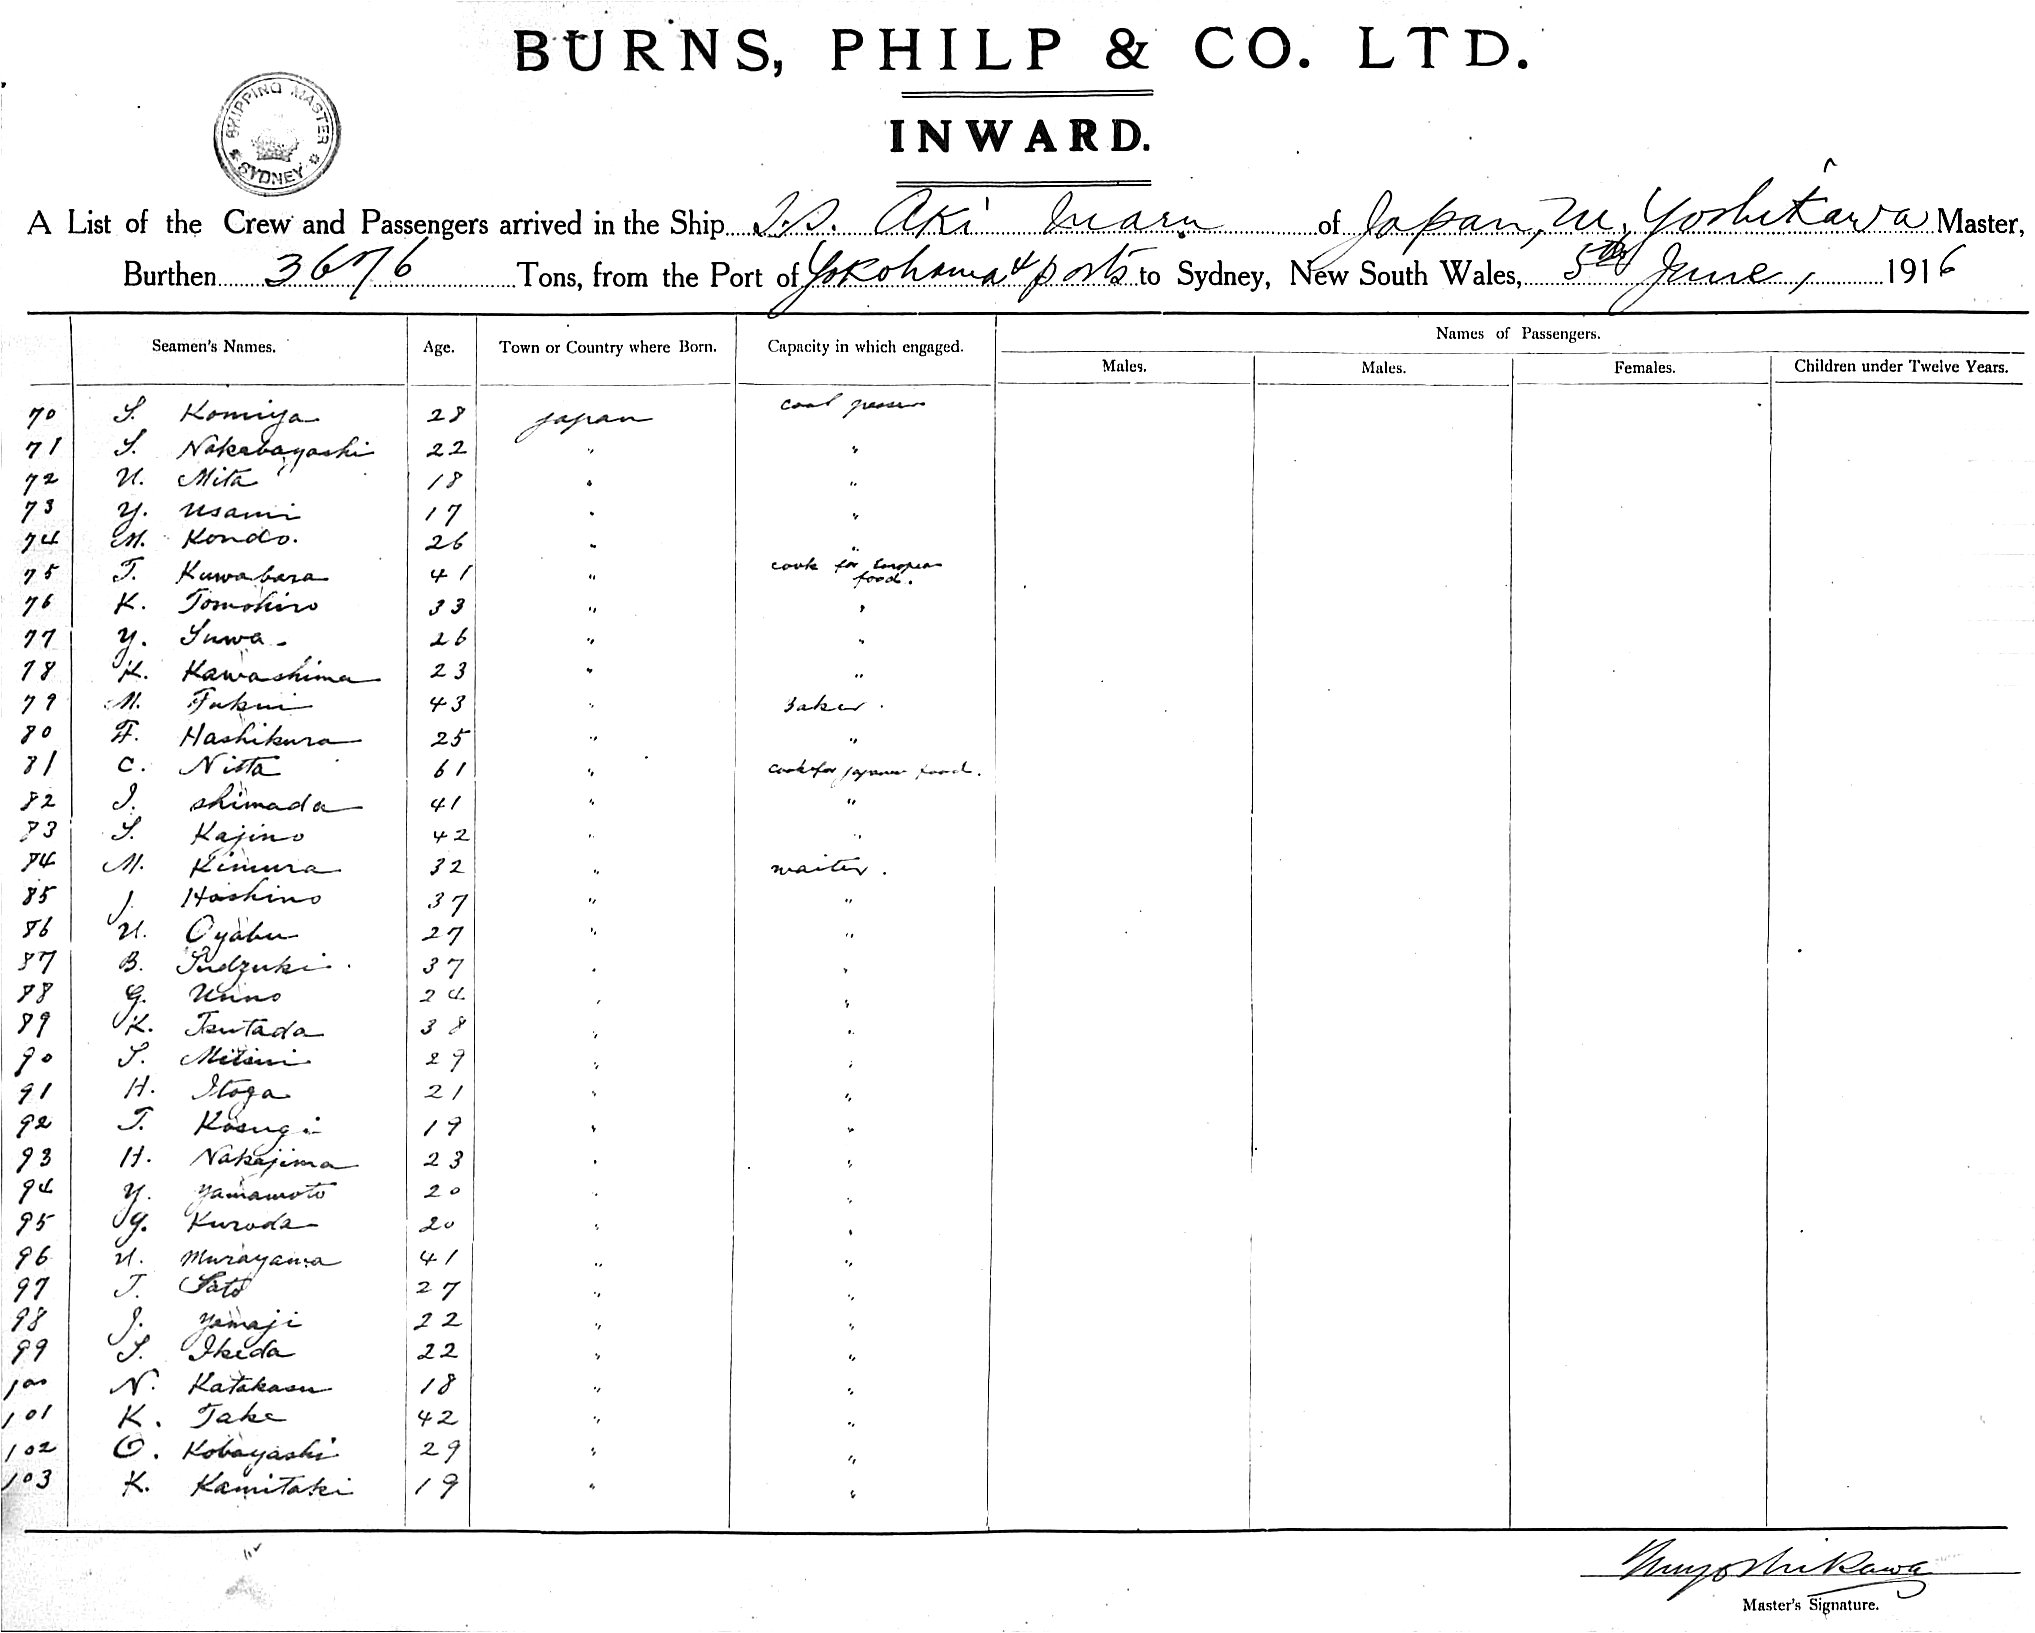 BURNS, PHILP & CO. LTD.
INWARD.
SHIPPING MASTER
SYDNEY
A List of the Crew and Passengers arrived in the Ship S.S. Aki Maru of Japan, M. Yoshikawa Master,
Burthen 3676 Tons, from the Port of Yokohama & ports to Sydney, New South Wales, 5th June, 1916
Names of Passengers.
Seamen's Names. Age. Town or Country where Born. Capacity in which engaged. Males. Males. Females. Children under Twelve Years.
70 S. Komiya 28 Japan coal passer
71 S. Nakabayashi 22 " "
72 U. Mita 18 " "
73 Y. Usami 17 " "
74 M. Kondo. 26 " "
75 T. Kuwabara 41 " cook for European food.
76 K. Tomohiro 33 " "
77 Y. Suwa 26 " "
78 K. Kawashima 23 " "
79 M. Fukui 43 " Baker.
80 F. Hashikura 25 " "
81 C. Nitta 61 " cook for Japanese food.
82 I. Shimada 41 " "
83 S. Kajino 42 " "
84 M. Kimura 32 " waiter.
85 J. Hoshino 37 " "
86 U. Oyabu 27 " "
87 B. Sudzuki. 37 " "
88 G. Unno 24 " "
89 K. Tsutada 38 " "
90 S. Mitsui 29 " "
91 H. Itoga 21 " "
92 T. Kosugi 19 " "
93 H. Nakajima 23 " "
94 Y. Yamamoto 20 " "
95 G. Kuroda 20 " "
96 U. Murayama 41 " "
97 T. Sato 27 " "
98 J. Yamaji 22 " "
99 S. Ikeda 22 " "
100 N. Katakasu 18 " "
101 K. Take 42 " "
102 O. Kobayashi 29 " "
103 K. Kamitaki 19 " "
M Yoshikawa
Master's Signature.